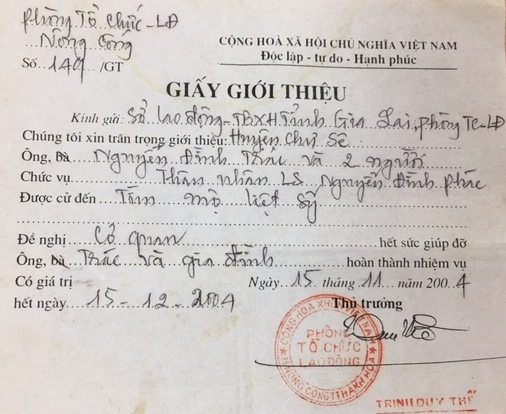 Phòng Tổ Chức-LĐ
Nông Cống
Số 149 /GT
CỘNG HOÀ XÃ HỘI CHỦ NGHĨA VIỆT NAM
Độc lập - tự do - Hạnh phúc
GIẤY GIỚI THIỆU
Kính gửi: Sở lao động-TBXH Tỉnh Gia Lai, phòng TC-LĐ
Chúng tôi xin trân trọng giới thiệu: Huyện Chư Sê
Ông, Bà Nguyễn Đình Thác và 2 người
Chức vụ Thân nhân LS Nguyễn Đình Phác
Được cử đến Tìm mộ liệt sỹ
Đề nghị Cơ quan hết sức giúp đỡ
Ông, bà Thác và gia đình hoàn thành nhiệm vụ
Có giá trị Ngày 15 tháng 11 năm 2004
hết ngày 15-12-2004 Thủ trưởng
CỘNG HOÀ XHCN VIỆT NAM
PHÒNG
TỔ CHỨC
LAO ĐỘNG
H. NÔNG CỐNG T. THANH HOÁ
TRỊNH DUY THẾ